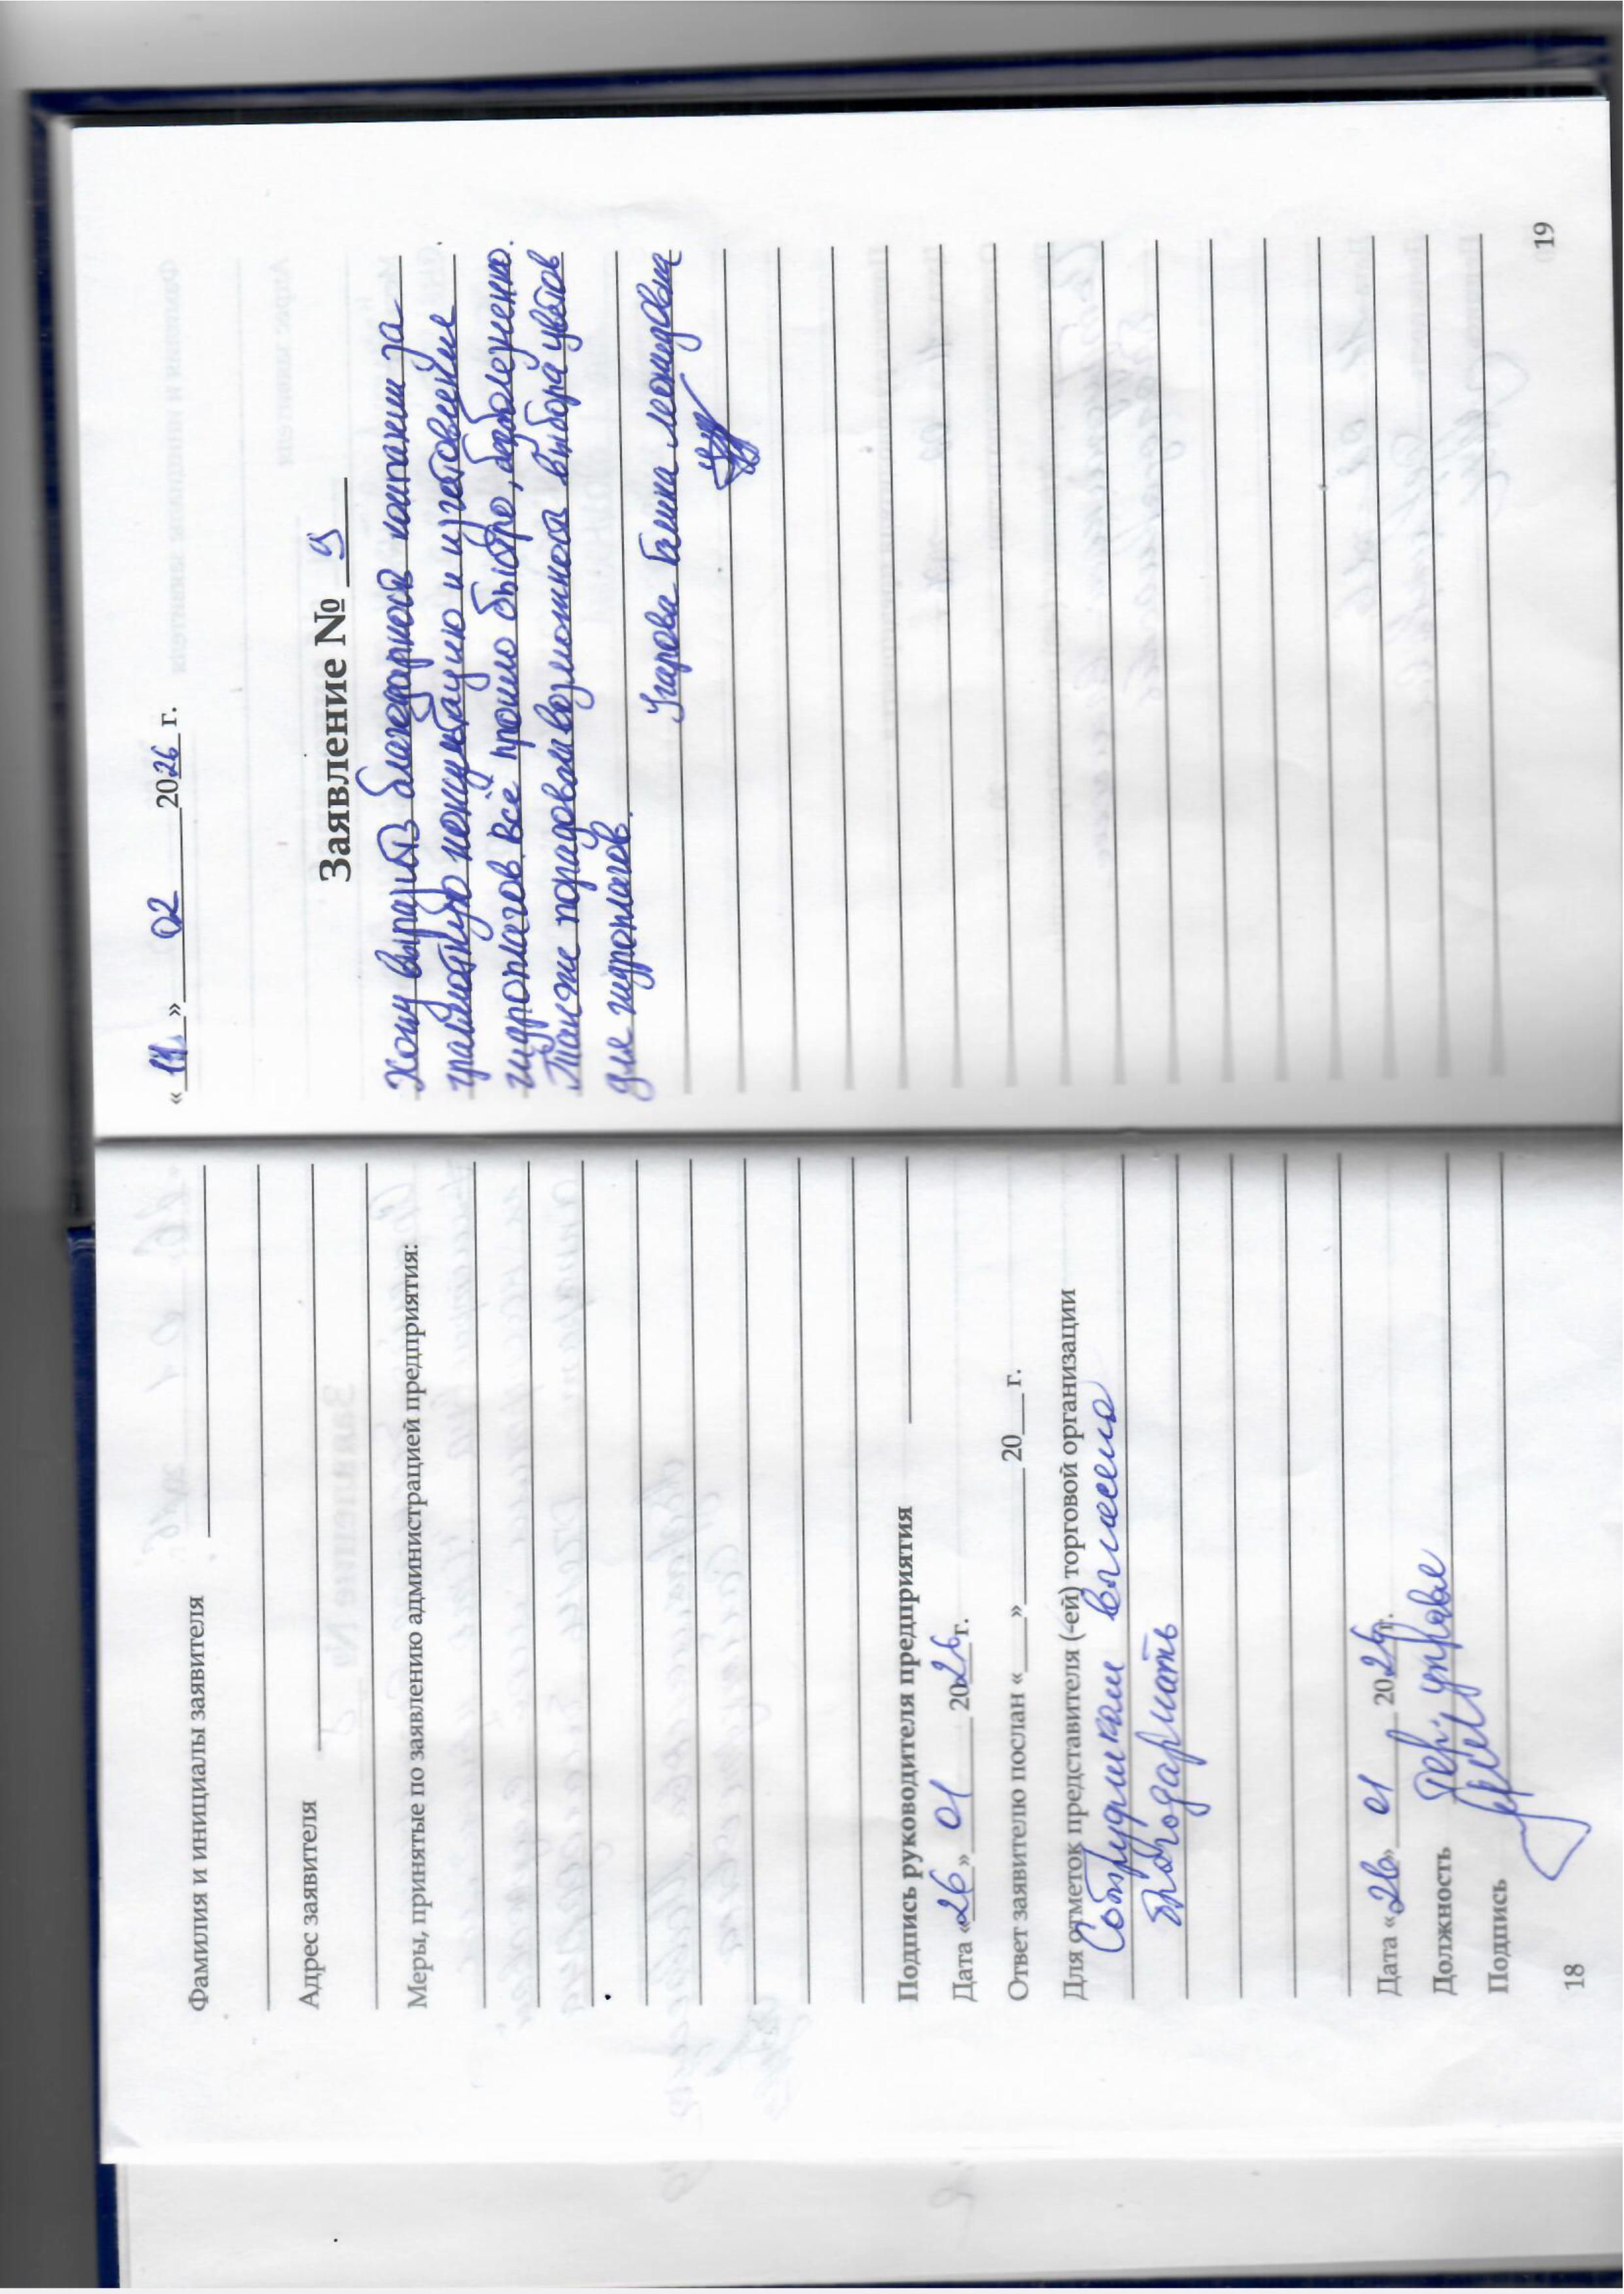 Фамилия и инициалы заявителя
Адрес заявителя
Меры, принятые по заявлению администрацией предприятия:
Подпись руководителя предприятия
Дата «26» 01 2026 г.
Ответ заявителю послан «___»________20___г.
Для отметок представителя (-ей) торговой организации
Сотрудникам вынесена
благодарность
Дата «26» 01 2026 г.
Должность
Подпись
18
«11» 02 2026 г.
Заявление № 9
Хочу выразить благодарность компании за
грамоткую консультацию и изготовление
гидроплагов. Всё прошло быстро, безболезненно.
Также порадовала возможность выбора цветов
для гидроплагов.
Елена Леонидовна
19